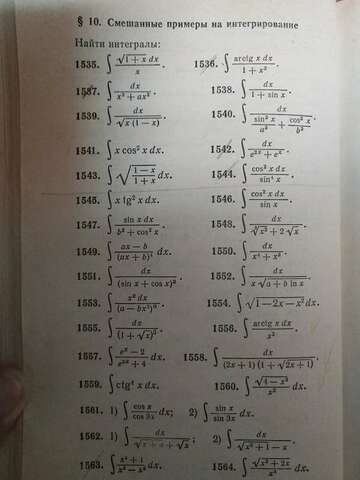 § 10. Смешанные примеры на интегрирование
Найти интегралы:
1535. ∫ √(1 + x) dx / x. 1536. ∫ arctg x dx / (1 + x²).
1537. ∫ dx / (x³ + ax²). 1538. ∫ dx / (1 + sin x).
1539. ∫ dx / (√x (1 − x)). 1540. ∫ dx / (sin² x / a² + cos² x / b²).
1541. ∫ x cos² x dx. 1542. ∫ dx / (e²ˣ + eˣ).
1543. ∫ √((1 − x) / (1 + x)) dx. 1544. ∫ cos² x dx / sin⁴ x.
1545. ∫ x tg² x dx. 1546. ∫ cos² x dx / sin x.
1547. ∫ sin x dx / (b² + cos² x). 1548. ∫ dx / (∛x² + 2 √x).
1549. ∫ (ax − b) / (ax + b)⁴ dx. 1550. ∫ dx / (x⁴ + x⁶).
1551. ∫ dx / (sin x + cos x)². 1552. ∫ dx / (x √(a + b ln x)).
1553. ∫ x² dx / (a − bx³)ⁿ. 1554. ∫ √(1 − 2x − x²) dx.
1555. ∫ dx / (1 + √x)³. 1556. ∫ arctg x dx / x².
1557. ∫ (eˣ − 2) / (e²ˣ + 4) dx. 1558. ∫ dx / ((2x + 1) (1 + √(2x + 1))).
1559. ∫ ctg⁴ x dx. 1560. ∫ √(4 − x²) / x² dx.
1561. 1) ∫ cos x / cos 3x dx; 2) ∫ sin x / sin 3x dx.
1562. 1) ∫ dx / (√(x + a) + √x); 2) ∫ dx / (√(x² + 1) − x).
1563. ∫ dx. 1564. ∫ dx.